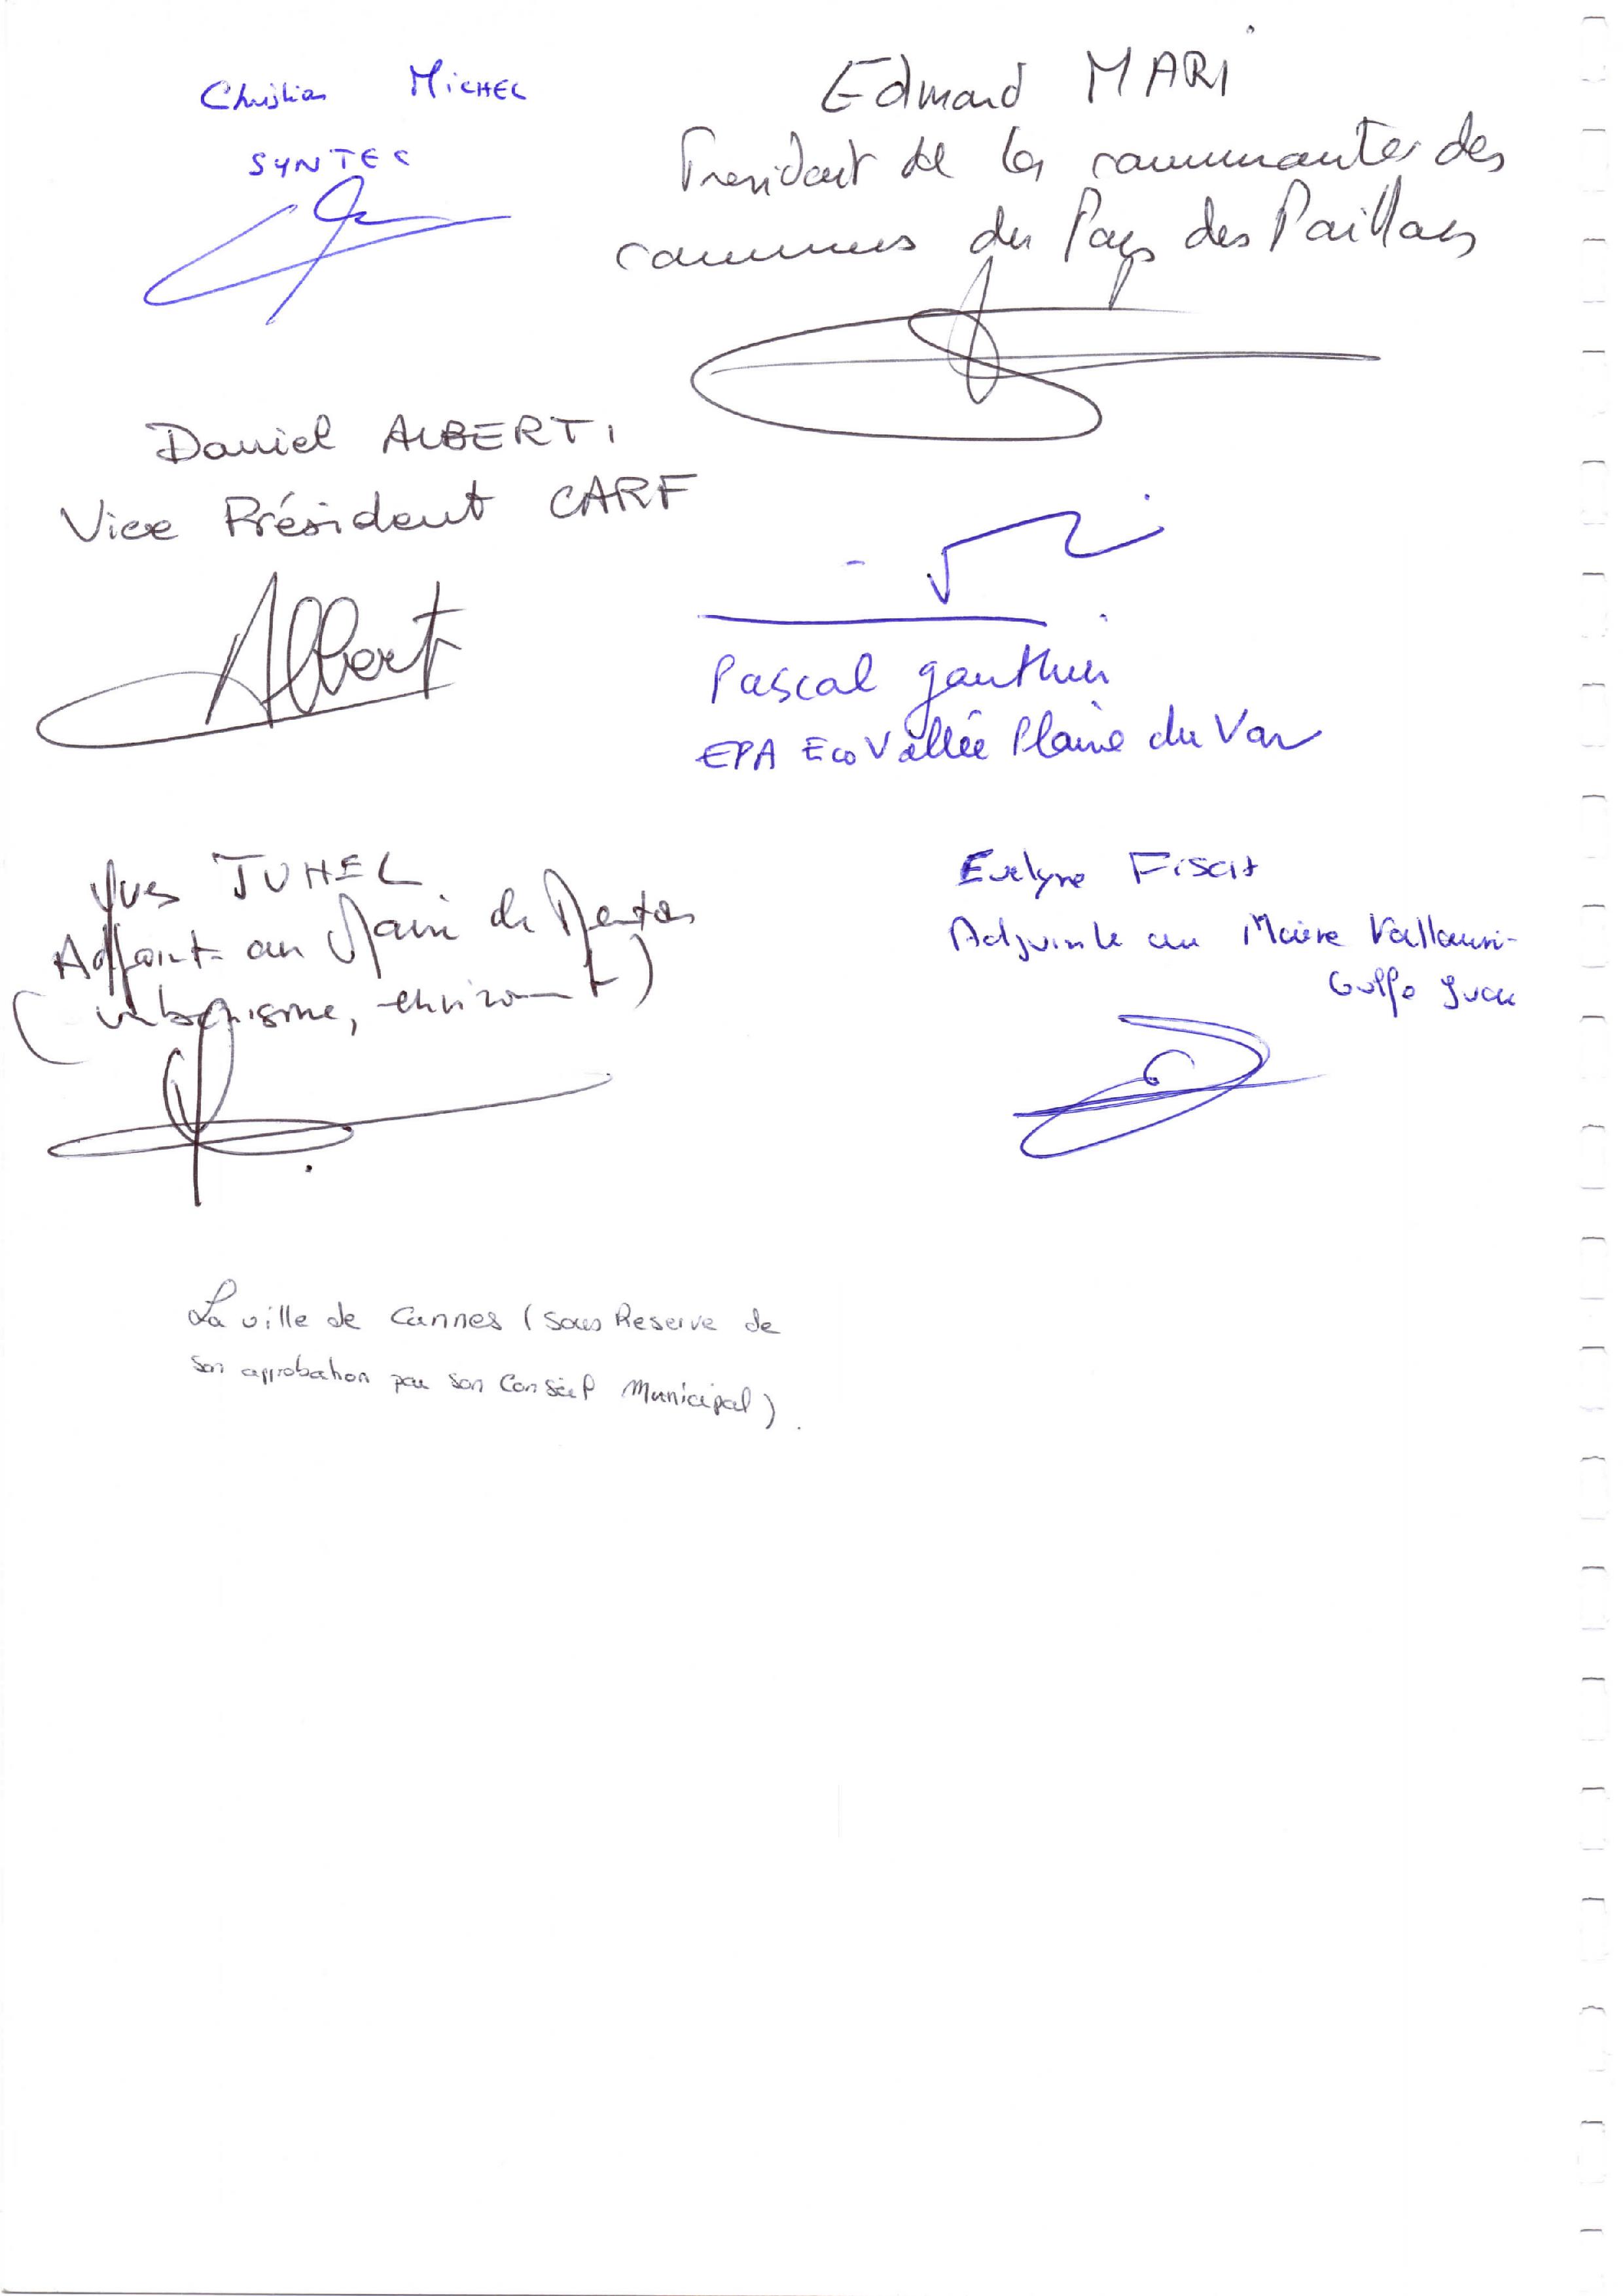 Christian MICHEL
SYNTEC
Edmond MARI
President de la communauté des
communes du Pays des Paillons
Daniel ALBERTI
Vice Président CARF
Albert
Pascal gauthier
EPA Eco Vallée Plaine du Var
Yves JUHEL
Adjoint au Maire de Menton
(urbanisme, environt)
Evelyne
Adjointe au Maire Vallauris-
Golfe Juan
La ville de Cannes (sous Reserve de
son approbation par son Conseil Municipal).